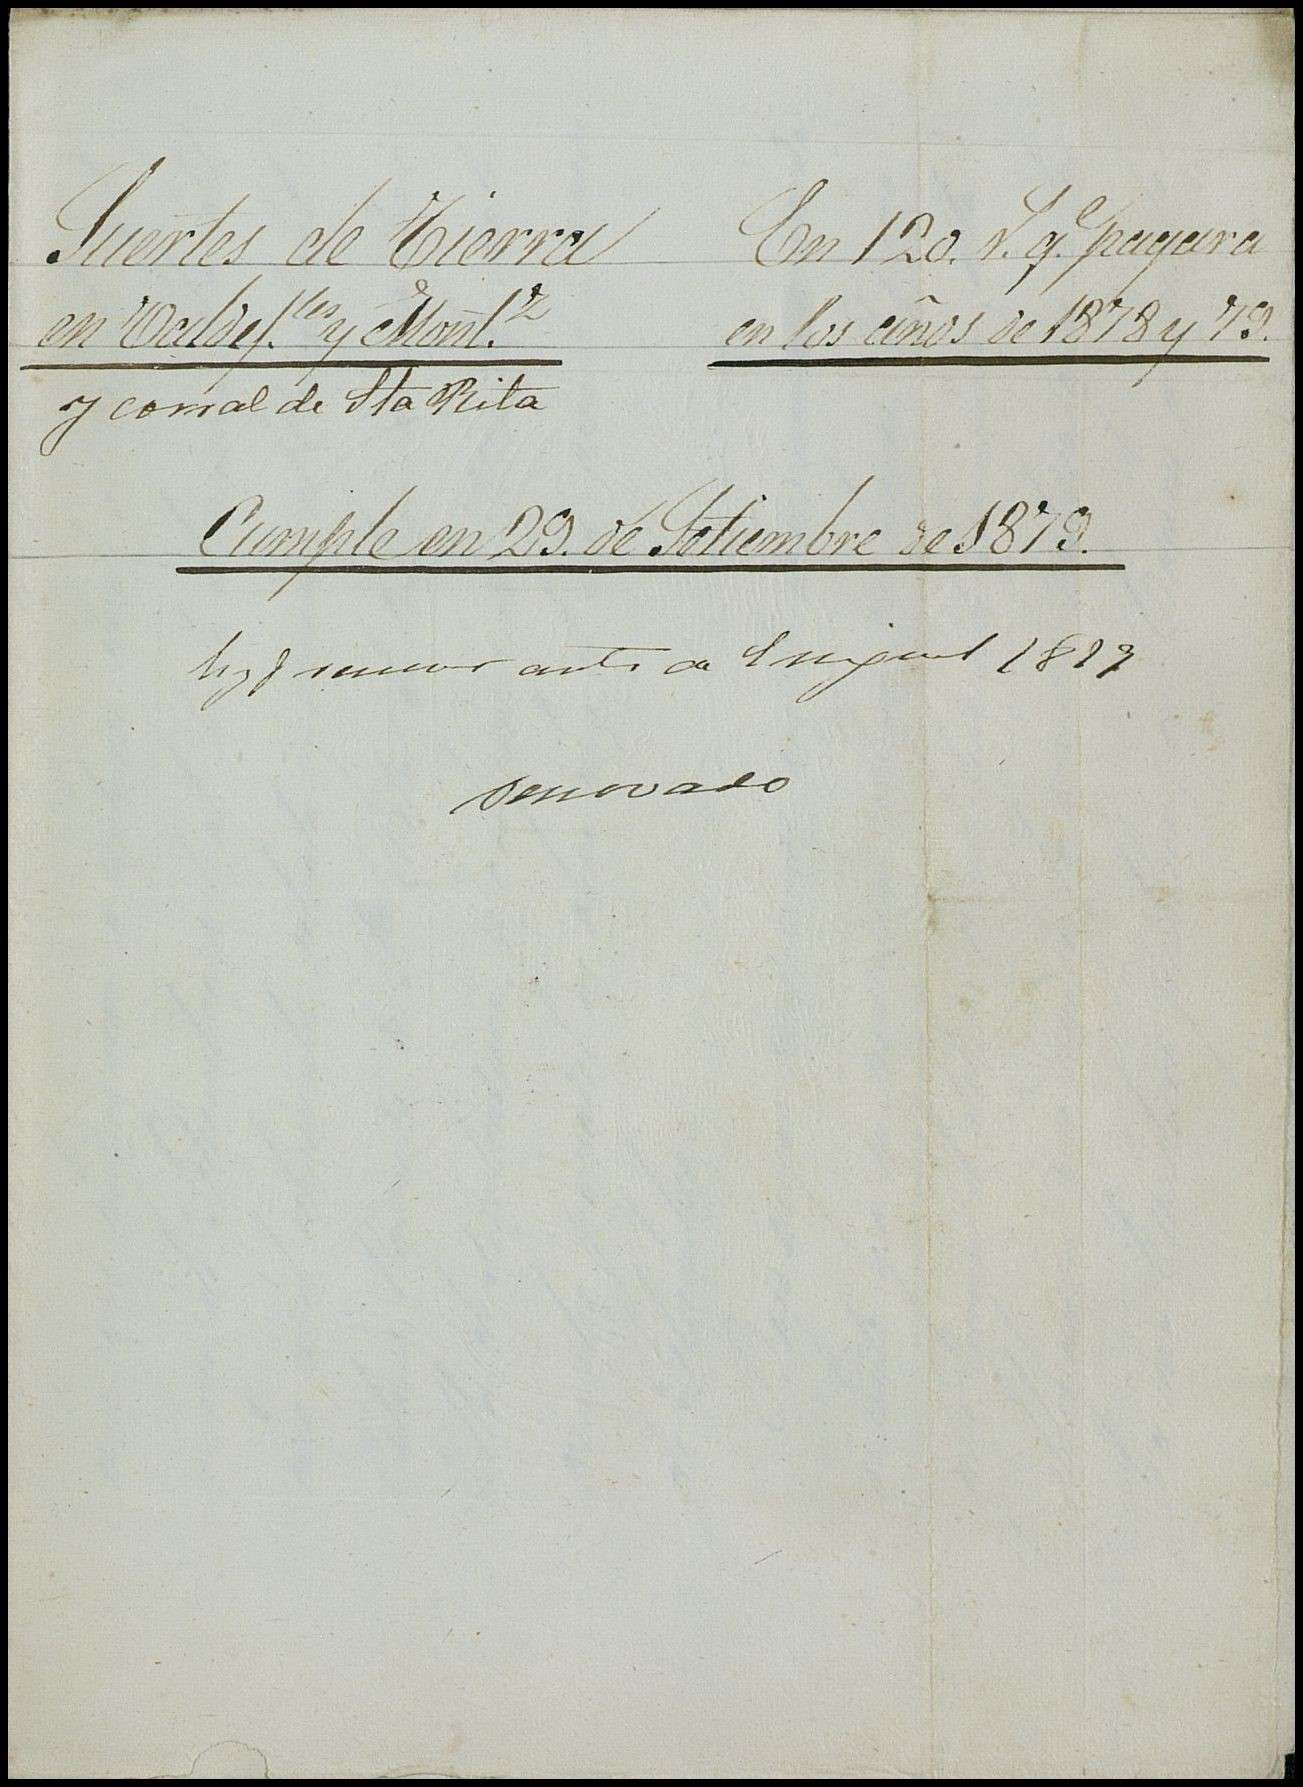 Suertes de Tierra
en Valdef.les y Moñl.z
y corral de Sta Rita
En 120. r. q.e pagara
en los años de 1878 y 79.
Cumple en 29. de Setiembre de 1879.
hay q renovar antes de S miguel 1879
renovado